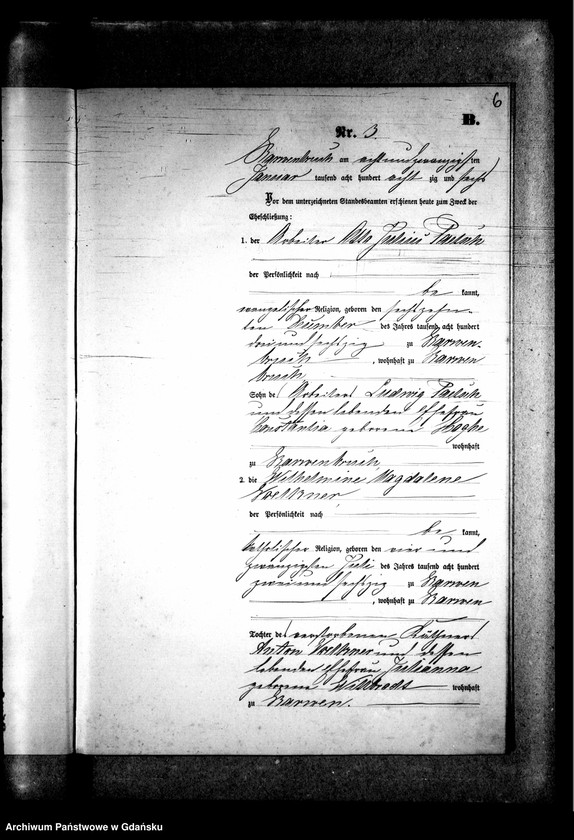 6
B.
Nr. 3.
Barwenbruch am achtundzwanzigsten
Januar tausend acht hundert acht zig und sechs
Vor dem unterzeichneten Standesbeamten erschienen heute zum Zweck der
Eheschließung:
1. der Arbeiter Otto Julius
der Persönlichkeit nach
be kannt,
evangelischer Religion, geboren den sechszehn-
ten Dezember des Jahres tausend acht hundert
dreiundsechzig zu Barwen-
bruch, wohnhaft zu Barwen
bruch
Sohn des Arbeiters Ludwig
und dessen lebenden Ehefrau
Constantia geborene
wohnhaft
zu Barwenbruch
2. die Wilhelmine Magdalene
Voelkner
der Persönlichkeit nach
be kannt,
katholischer Religion, geboren den vier und
zwanzigsten Juli des Jahres tausend acht hundert
zweiundsechzig zu Barwen
, wohnhaft zu Barwen
Tochter des verstorbenen
Anton Voelkner und dessen
lebenden Ehefrau Julianna
geborene wohnhaft
zu Barwen.
Archiwum Państwowe w Gdańsku